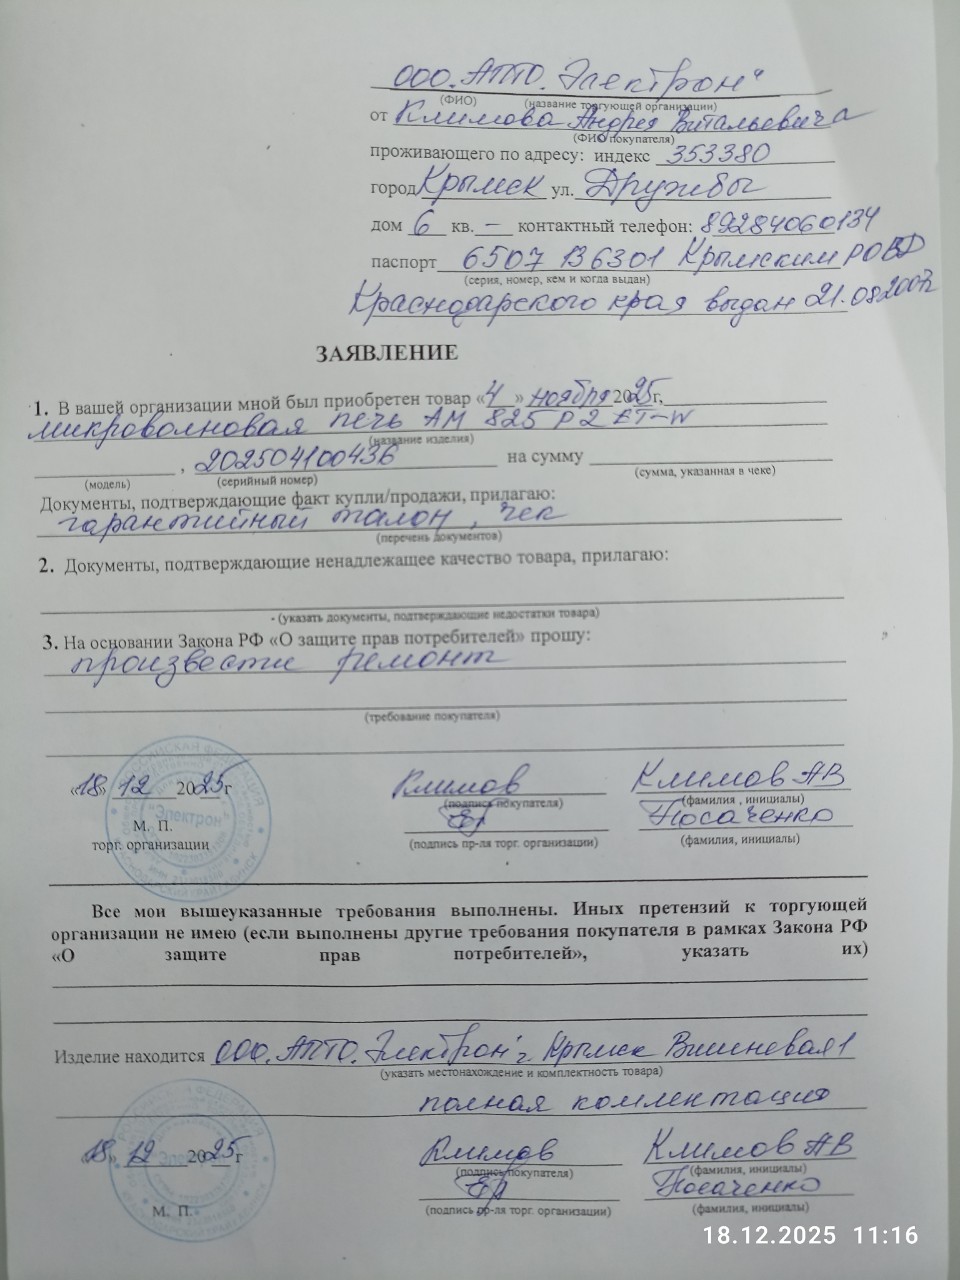 ООО. АПТО. Электрон"
(ФИО) (название торгующей организации)
от Климова Андрея Витальевича
(ФИО покупателя)
проживающего по адресу: индекс 353380
город Крымск ул. Дружбы
дом 6 кв. – контактный телефон: 89284060134
паспорт 6507 136301 Крымским РОВД
(серия, номер, кем и когда выдан)
Краснодарского края выдан 21.08.2007
ЗАЯВЛЕНИЕ
1. В вашей организации мной был приобретен товар «4» ноября 2025г,
микроволновая печь АМ 825 P2 ET-W
(название изделия)
, 202504100436 на сумму
(модель) (серийный номер) (сумма, указанная в чеке)
Документы, подтверждающие факт купли/продажи, прилагаю:
гарантийный талон, чек
(перечень документов)
2. Документы, подтверждающие ненадлежащее качество товара, прилагаю:
- (указать документы, подтверждающие недостатки товара)
3. На основании Закона РФ «О защите прав потребителей» прошу:
произвести ремонт
(требование покупателя)
«18» 12 2025г Климов Климов АВ
(подпись покупателя) (фамилия , инициалы)
"Электрон"
М. П. Посаченко
торг. организации (подпись пр-ля торг. организации) (фамилия, инициалы)
Все мои вышеуказанные требования выполнены. Иных претензий к торгующей
организации не имею (если выполнены другие требования покупателя в рамках Закона РФ
«О защите прав потребителей», указать их)
Изделие находится ООО. АПТО. Электрон" г Крымск Вишневая 1
(указать местонахождение и комплектность товара)
полная комплектация
«18» 12 2025г Климов Климов АВ
(подпись покупателя) (фамилия, инициалы)
Посаченко
М. П. (подпись пр-ля торг. организации) (фамилия, инициалы)
18.12.2025 11:16